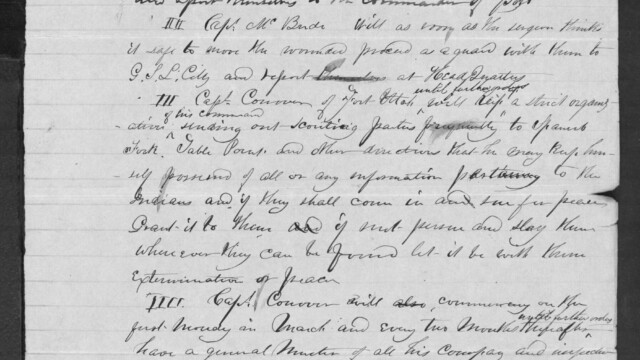 and report themselves to the commander of post
III Capt. Mc Bride Will as soon as the surgeon thinks
it safe to move the wounded proceed as a guard with them to
G. S. L. City and report at Head Quarters
until further orders
III Capt. Conover of Fort Utah will keep a strict organiz
of his command
ation sending out scouting parties frequently to Spanish
Fork, Table Point and other directions that he may keep him
self possessed of all or any information to the
Indians and if they shall come in and sue for peace
Grant it to them if not persue and slay them
wherever they can be found let it be with them
Extermination or peace
Capt. Conover will also, commencing on the
until further orders
first Monday in March and every two Months thereafter
have a general Muster of all his Company and